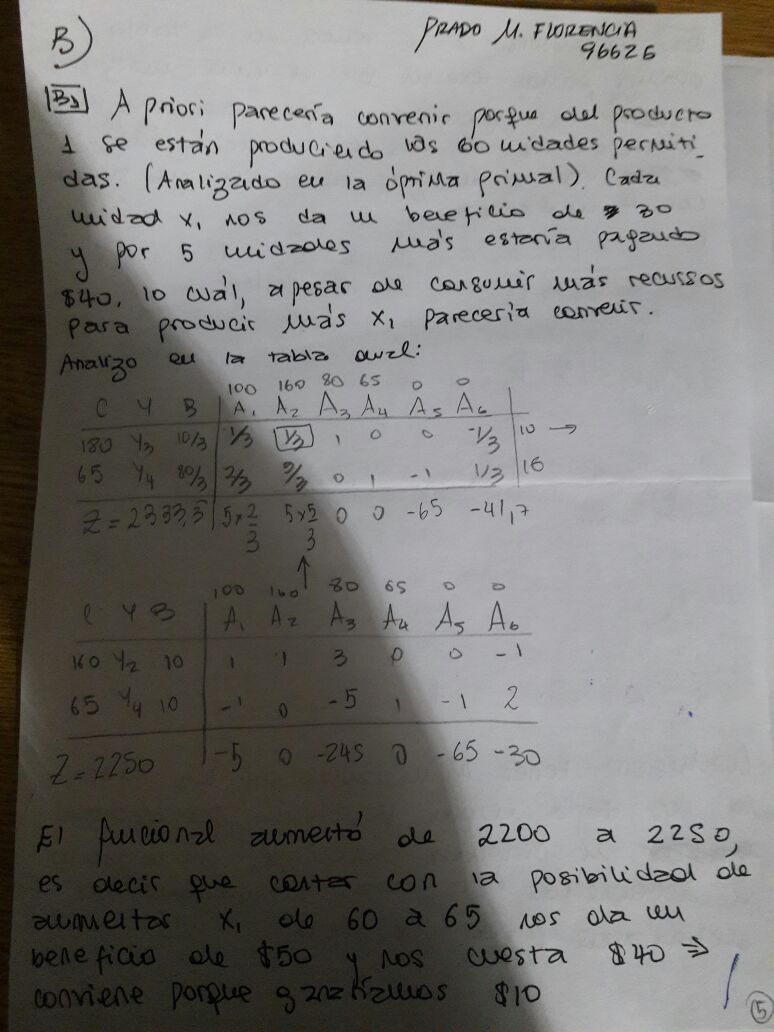 B)
PRADO M. FLORENCIA
96626
B1 A priori parecería convenir porque del producto
1 se están produciendo las 60 unidades permiti-
das. (Analizado en la óptima primal). Cada
unidad X1 nos da un beneficio de 30
y por 5 unidades más estaría pagando
$40, lo cuál, a pesar de consumir más recursos
para producir más X1 parecería convenir.
Analizo en la tabla dual:
100 160 80 65 0 0
C Y B A1 A2 A3 A4 A5 A6
180 Y3 10/3 1/3 1/3 1 0 0 -1/3 10 →
65 Y4 80/3 2/3 5/3 0 1 -1 1/3 16
Z = 2333,3 5x2/3 5x5/3 0 0 -65 -41,7
↑
100 160 80 65 0 0
C Y B A1 A2 A3 A4 A5 A6
160 Y2 10 1 1 3 0 0 -1
65 Y4 10 -1 0 -5 1 -1 2
Z = 2250 -5 0 -245 0 -65 -30
El funcional aumentó de 2200 a 2250,
es decir que contar con la posibilidad de
aumentar X1 de 60 a 65 nos da un
beneficio de $50 y nos cuesta $40 ⇒
conviene porque ganaríamos $10
5